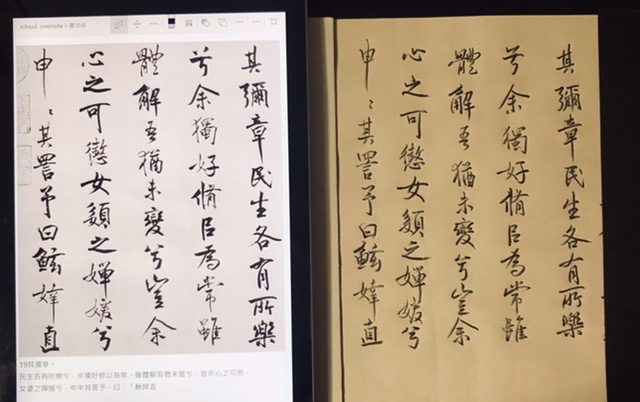 icloud onenote
其彌章民生各有所樂
兮余獨好脩㠯為常雖
體解吾猶未變兮豈余
心之可懲女嬃之嬋媛兮
申〻其詈予曰鯀婞直
19其彌章。
民生各有所樂兮，余獨好修以為常。雖體解吾猶未變兮，豈余心之可懲。
女嬃之嬋媛兮，申申其詈予，曰：「鯀婞直
其彌章民生各有所樂
兮余獨好脩㠯為常雖
體解吾猶未變兮豈余
心之可懲女嬃之嬋媛兮
申〻其詈予曰鯀婞直